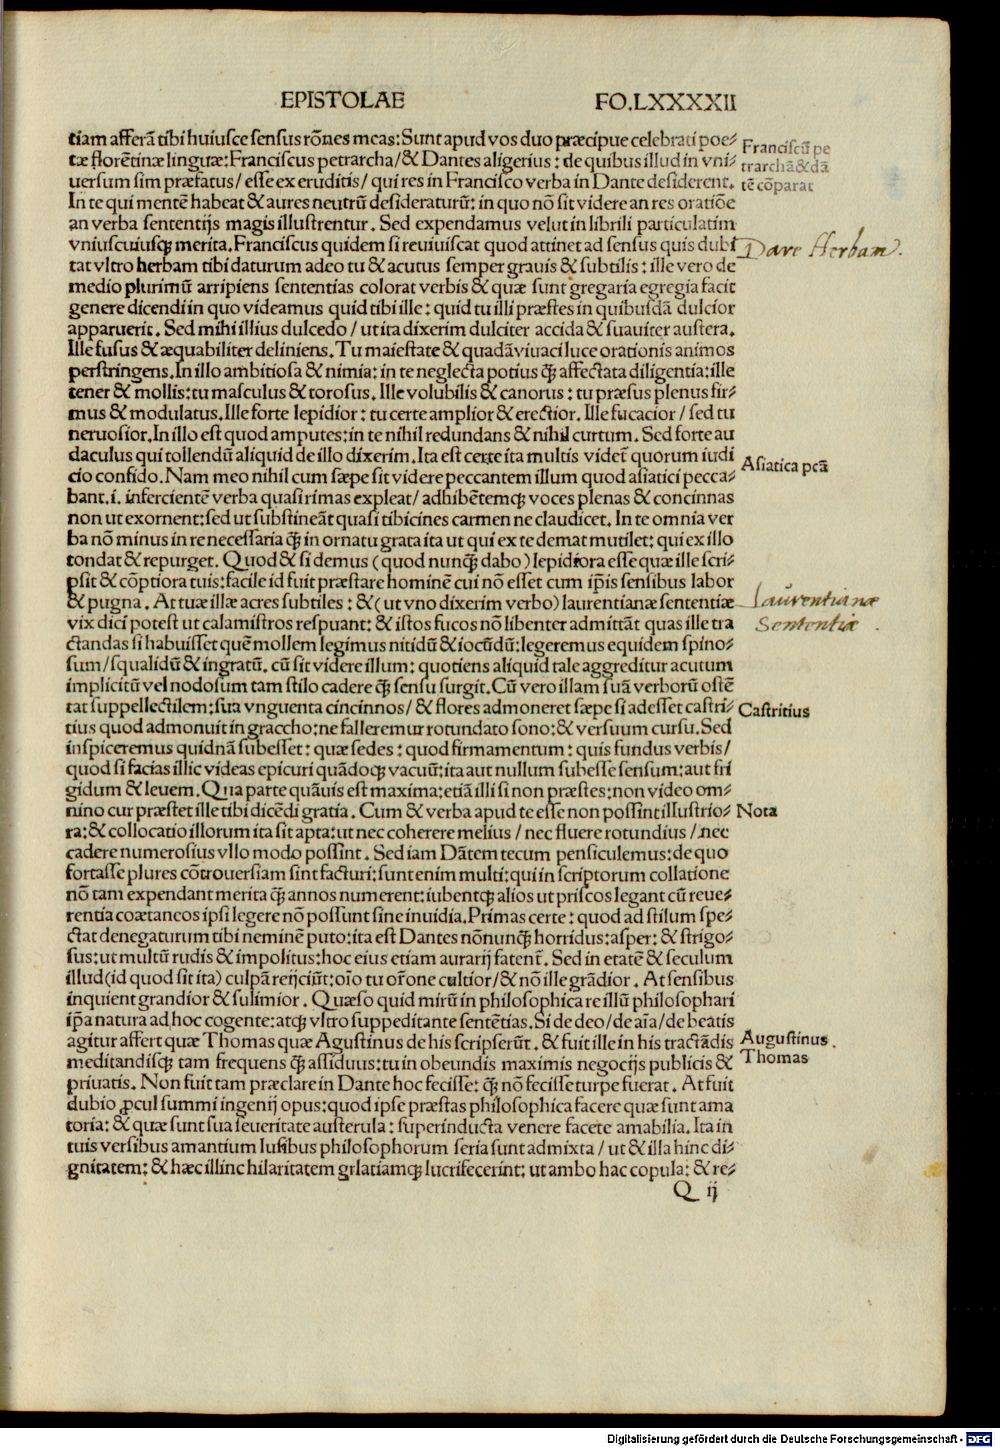 EPISTOLAE FO.LXXXXII
tiam afferā tibi huiusce sensus rōnes meas:Sunt apud vos duo præcipue celebrati poe⸗
tæ florētinæ linguæ:Franciscus petrarcha/& Dantes aligerius: de quibus illud in vni⸗
uersum sim præfatus/ esse ex eruditis/ qui res in Francisco verba in Dante desiderent.
In te qui mentē habeat & aures neutrū desideraturū: in quo nō sit videre an res oratiōe
an verba sententijs magis illustrentur. Sed expendamus velut in librili particulatim
vniuscuiusqꝫ merita.Franciscus quidem si reuiuiscat quod attinet ad sensus quis dubi
tat vltro herbam tibi daturum adeo tu & acutus semper grauis & subtilis: ille vero de
medio plurimū arripiens sententias colorat verbis & quæ sunt gregaria egregia facit
genere dicendi in quo videamus quid tibi ille: quid tu illi præstes in quibusdā dulcior
apparuerit. Sed mihi illius dulcedo / ut ita dixerim dulciter accida & suauiter austera.
Ille fusus & æquabiliter deliniens. Tu maiestate & quadā viuaci luce orationis animos
perstringens.In illo ambitiosa & nimia: in te neglecta potius q̄ȝ affectata diligentia:ille
tener & mollis:tu masculus & torosus. Ille volubilis & canorus: tu præsus plenus fir⸗
mus & modulatus. Ille forte lepidior: tu certe amplior & erectior. Ille fucacior / sed tu
neruosior.In illo est quod amputes:in te nihil redundans & nihil curtum. Sed forte au
daculus qui tollendū aliquid de illo dixerim. Ita est certe ita multis videt̄ quorum iudi
cio confido. Nam meo nihil cum sæpe sit videre peccantem illum quod asiatici pecca⸗
bant.i. infercientē verba quasi rimas expleat/ adhibētemqꝫ voces plenas & concinnas
non ut exornent:sed ut substineāt quasi tibicines carmen ne claudicet. In te omnia ver
ba nō minus in re necessaria q̄ȝ in ornatu grata ita ut qui ex te demat mutilet: qui ex illo
tondat & repurget. Quod & si demus (quod nunq̄ȝ dabo) lepidiora esse quæ ille scri⸗
psit & cōptiora tuis:facile id fuit præstare hominē cui nō esset cum ip̄is sensibus labor
& pugna. At tuæ illæ acres subtiles: & (ut vno dixerim verbo) laurentianæ sententiæ
vix dici potest ut calamistros respuant: & istos fucos nō libenter admittāt quas ille tra
ctandas si habuisset quē mollem legimus nitidū & iocūdū:legeremus equidem spino⸗
sum/squalidū & ingratū. cū sit videre illum: quotiens aliquid tale aggreditur acutum
implicitū vel nodosum tam stilo cadere q̄ȝ sensu surgit. Cū vero illam suā verborū ostē
tat suppellectilem:sua vnguenta cincinnos/ & flores admoneret sæpe si adesset castri⸗
tius quod admonuit in graccho:ne falleremur rotundato sono:& versuum cursu. Sed
inspiceremus quidnā subesset: quæ sedes: quod firmamentum: quis fundus verbis/
quod si facias illic videas epicuri quādoqꝫ vacuū:ita aut nullum subesse sensum:aut fri
gidum & leuem. Qua parte quāuis est maxima:etiā illi si non præstes:non video om⸗
nino cur præstet ille tibi dicēdi gratia. Cum & verba apud te esse non possint illustrio⸗
ra:& collocatio illorum ita sit apta:ut nec coherere melius / nec fluere rotundius / nec
cadere numerosius vllo modo possint. Sed iam Dātem tecum pensiculemus:de quo
fortasse plures cōtrouersiam sint facturi:sunt enim multi:qui in scriptorum collatione
nō tam expendant merita q̄ȝ annos numerent:iubentqꝫ alios ut priscos legant cū reue⸗
rentia coætaneos ipsi legere nō possunt sine inuidia.Primas certe: quod ad stilum spe⸗
ctat denegaturum tibi neminē puto:ita est Dantes nōnunq̄ȝ horridus:asper: & strigo⸗
sus:ut multū rudis & impolitus:hoc eius etiam aurarij fatent̄. Sed in etatē & seculum
illud(id quod sit ita) culpā reijciūt:oīo tu or̄one cultior/& nō ille grādior. At sensibus
inquient grandior & sulimior. Quæso quid mirū in philosophica re illū philosophari
ip̄a natura ad hoc cogente:atqꝫ vltro suppeditante sentētias. Si de deo/de aīa/de beatis
agitur affert quæ Thomas quæ Agustinus de his scripserūt. & fuit ille in his tractādis
meditandisqꝫ tam frequens q̄ȝ assiduus:tu in obeundis maximis negocijs publicis &
priuatis. Non fuit tam præclare in Dante hoc fecisse: q̄ȝ nō fecisse turpe fuerat. At fuit
dubio ꝓcul summi ingenij opus:quod ipse præstas philosophica facere quæ sunt ama
toria: & quæ sunt sua seueritate austerula: superinducta venere facete amabilia. Ita in
tuis versibus amantium lusibus philosophorum seria sunt admixta / ut & illa hinc di⸗
gnitatem: & hæc illinc hilaritatem grlatiamqꝫ lucrifecerint: ut ambo hac copula: & re⸗
Q ij
Franciscū pe
trarchā & dā
tē cōparat
Dare Herbam.
Asiatica pcā
Laurentianæ
Sententiæ.
Castritius
Nota
Augustinus.
Thomas
Digitalisierung gefördert durch die Deutsche Forschungsgemeinschaft - DFG